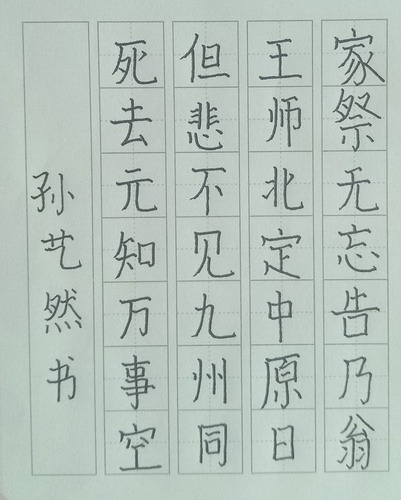 死去元知万事空
但悲不见九州同
王师北定中原日
家祭无忘告乃翁
孙艺然书